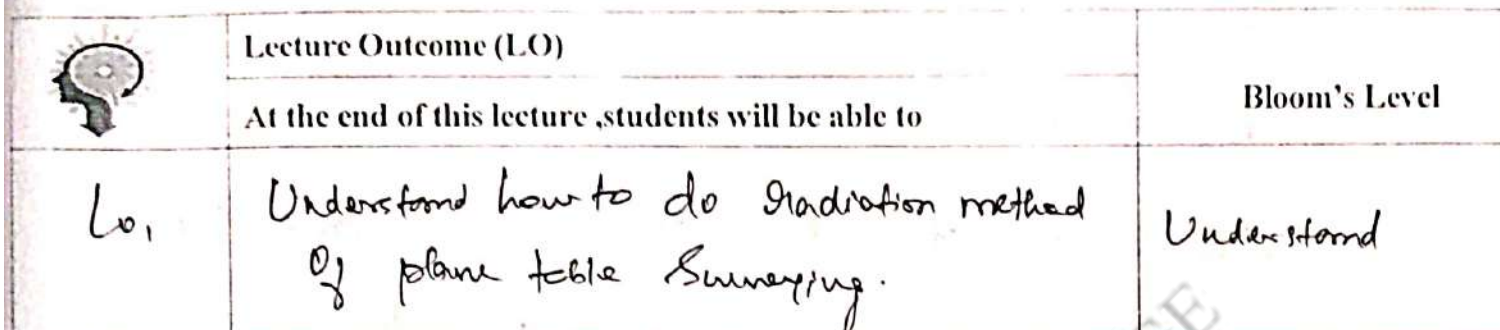 Lecture Outcome (LO)
At the end of this lecture ,students will be able to
Bloom's Level
Lo1
Understand how to do radiation method
Of plane table Surveying.
Understand